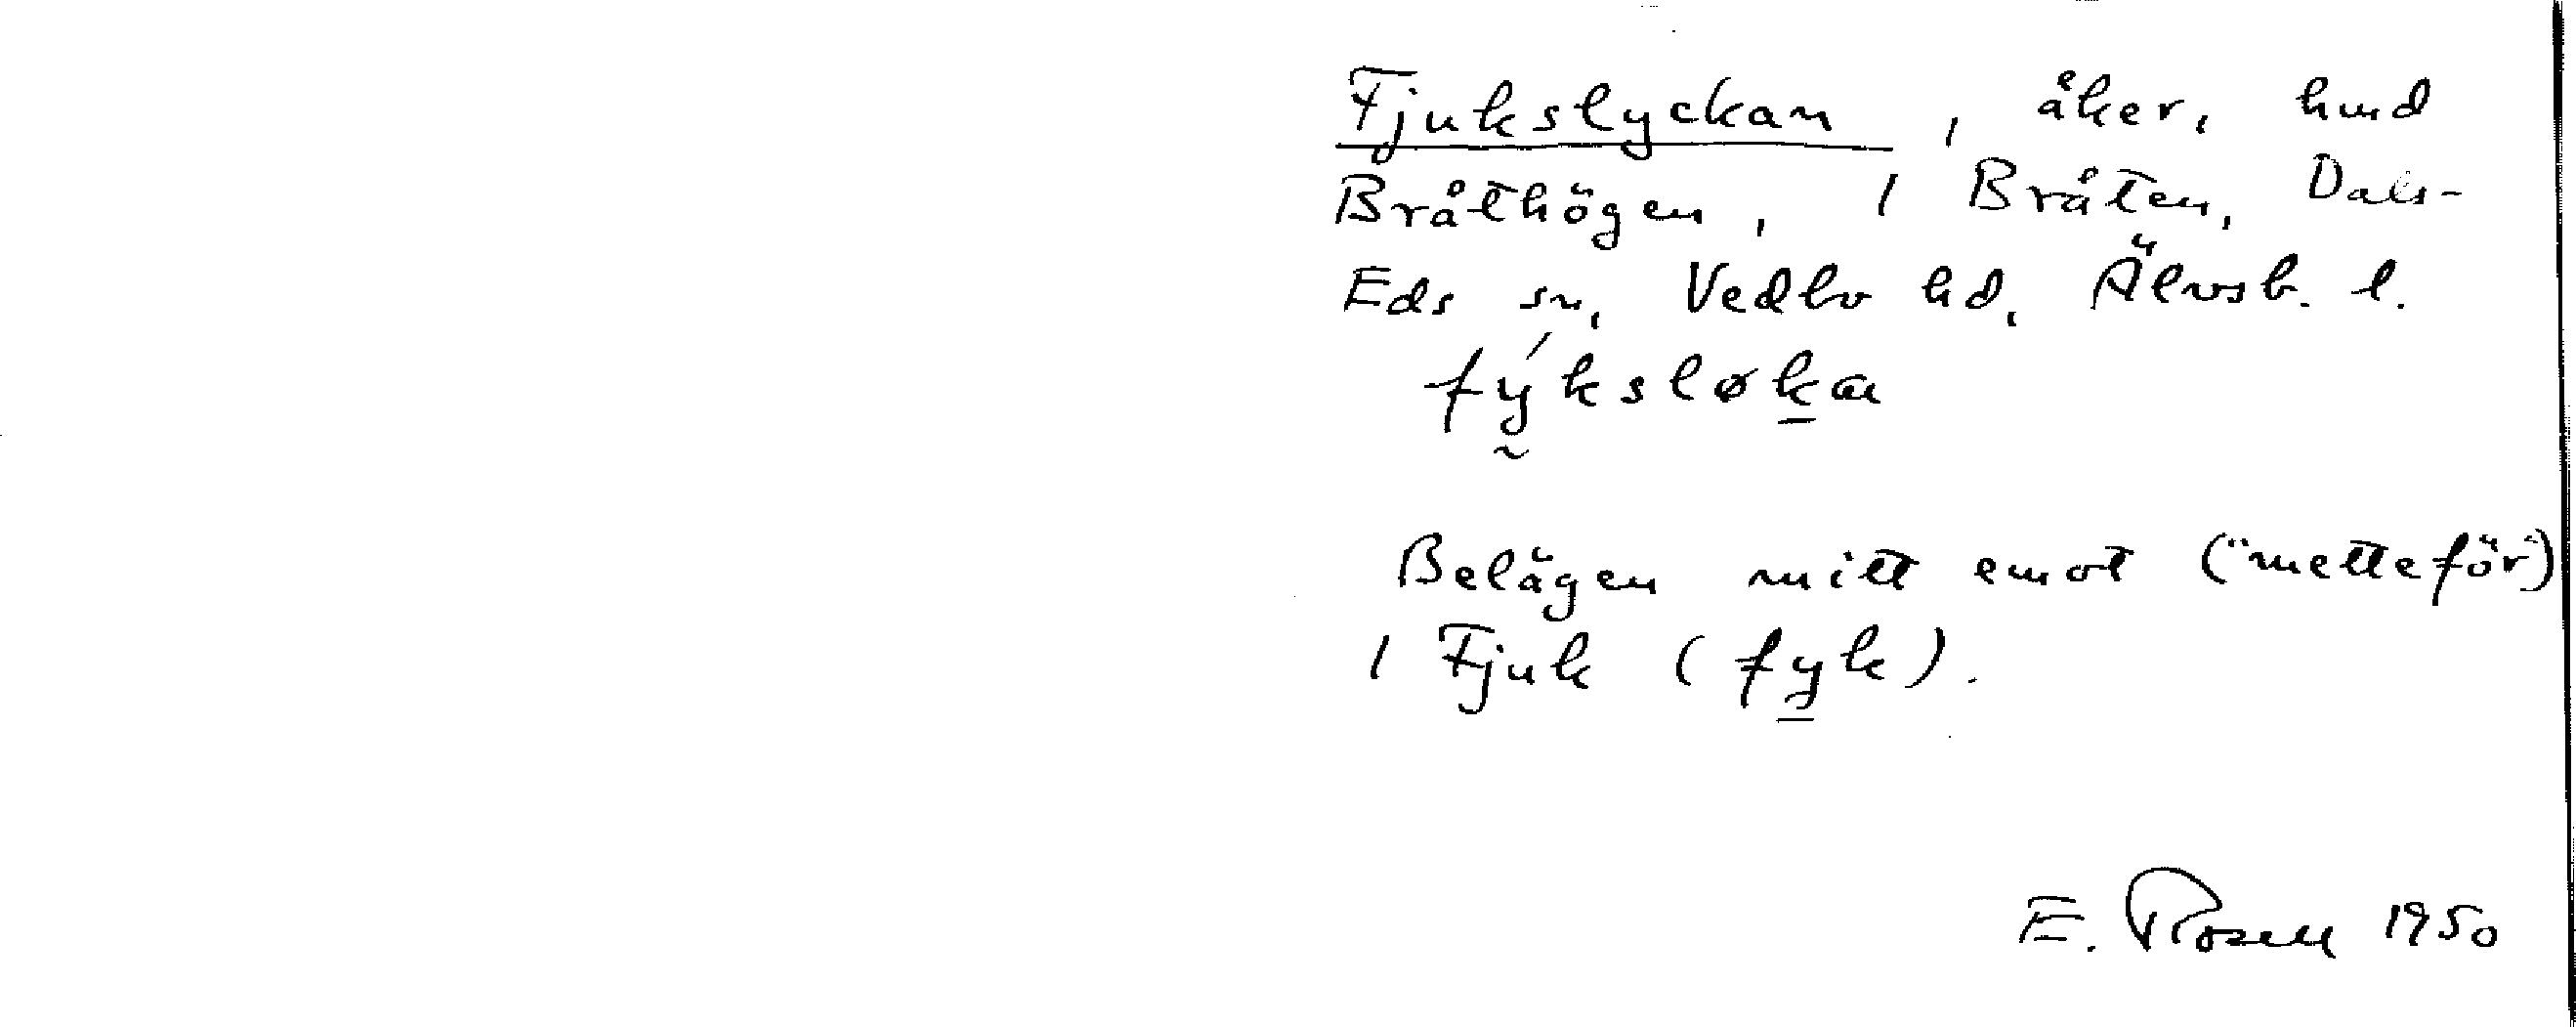 Fjukslyckan, åker, hmd
Bråthögen, 1 Bråten, Dals-
Eds sn, Vedbo hd, Älvsb. l.
fýksløka
Belägen mitt emot ("metteför")
1 Fjuk (fyk).
E. Rosell 1950